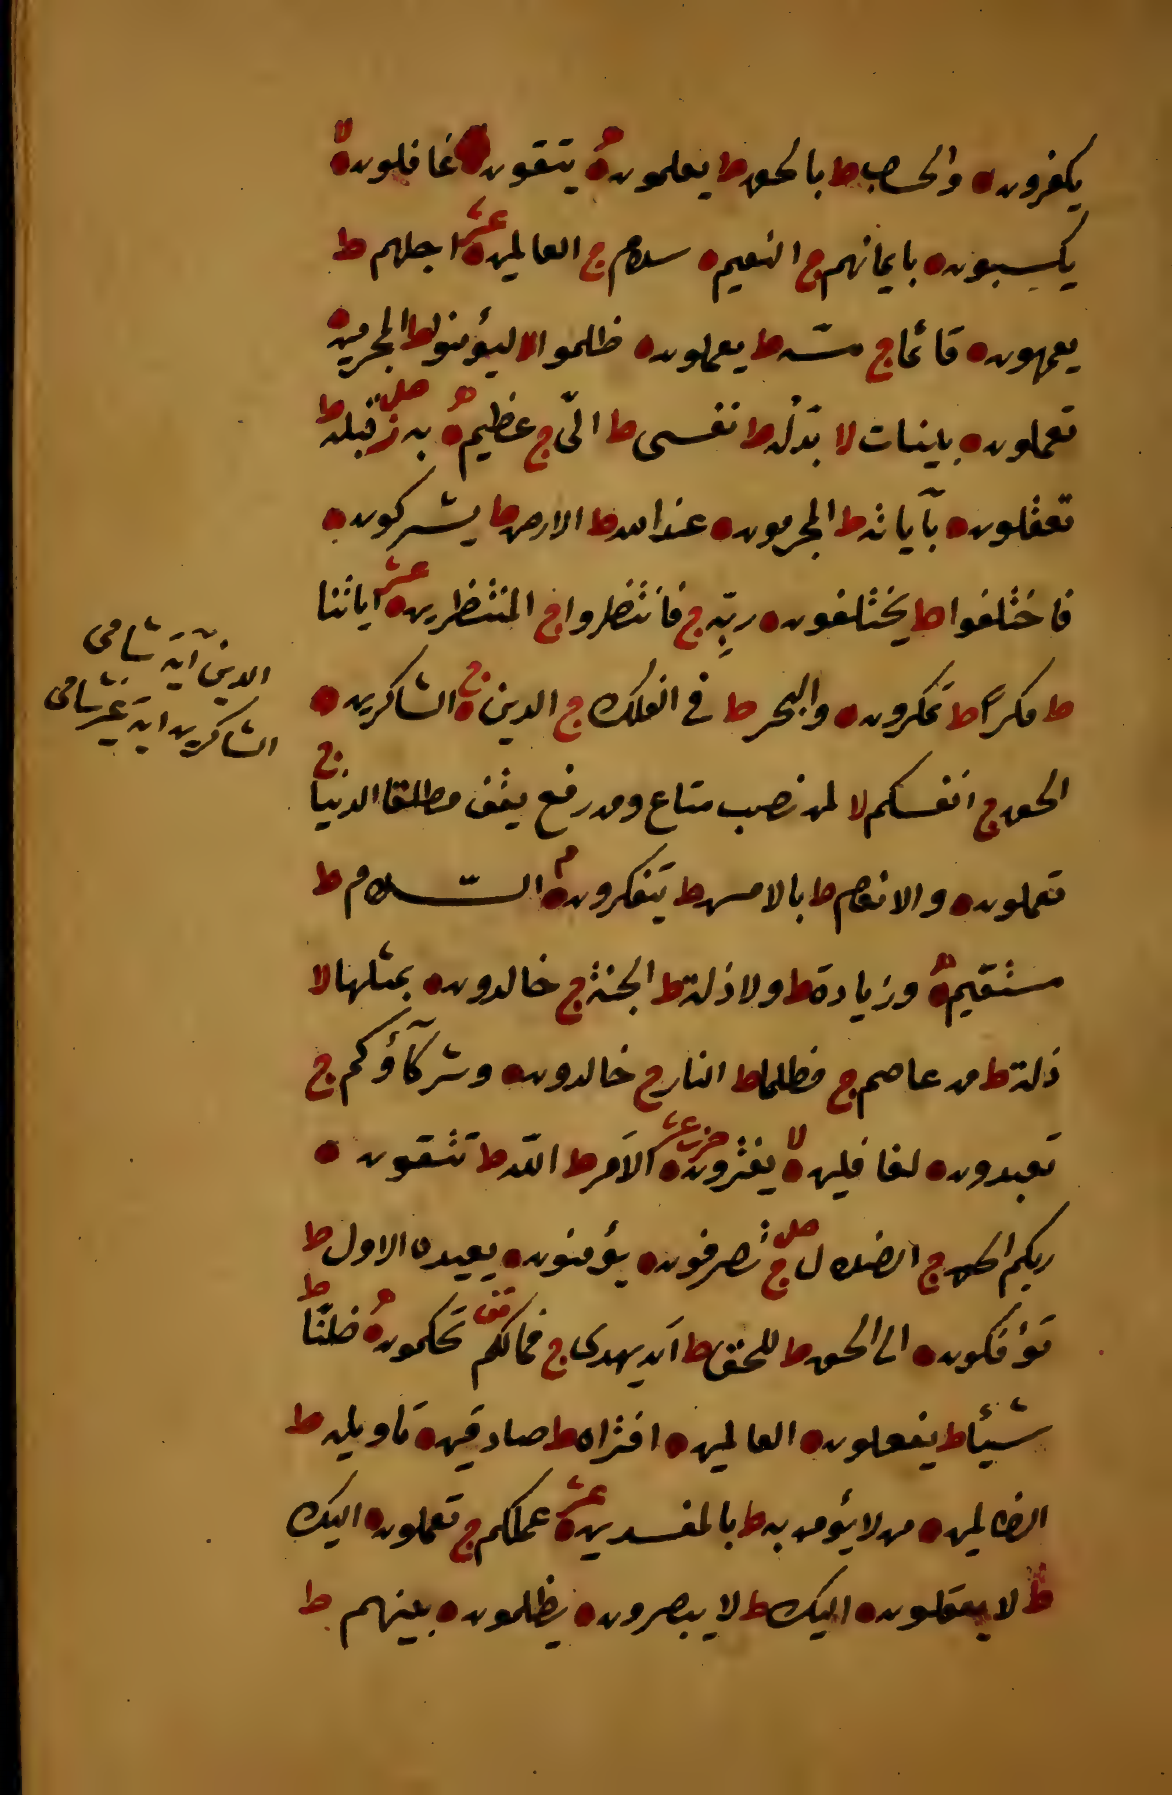 يكفرون والحساب ط بالحق ط يعلمون يتقون غافلون لا
يكسبون بايمانهم ج النعيم سلام ج العالمين عشر اجلهم ط
يعمهون قائما ج مسّه ط يعملون ظلموا لا ليؤمنوا ط المجرمين
تعملون بينات لا بدّله ط نفسى ط الىّ ج عظيم ه به ز صلى قبله ط
تعقلون بآياته ط المجرمون عند الله ط الارض ط يشركون
فاختلفوا ط يختلفون ربّه ج فانتظروا ج المنتظرين عشر اياتنا
ط مكراً ط تمكرون والبحر ط فى الفلك ج الدين ج الشاكرين
الدين آية شامى
الشاكرين اية غير شامى
الحق ج انفسكم لا لمن نصب متاع ومن رفع يقف مطلقا الدنيا ج
تعملون والانعام ط بالامس ط يتفكرون م السّلام ط
مستقيم ه وزيادة ط ولا ذلة ط الجنة ج خالدون بمثلها لا
ذلة ط من عاصم ج مظلما ط النار ج خالدون وشركآؤكم ج
تعبدون لغافلين لا يفترون حزب عشر الاَمر ط اللّه ط تتقون
ربكم الحق ج الضلال ج صلى تصرفون يؤمنون يعيده الاول ط
تؤفكون الى الحق ط للحق ط اَن يهدى ج فمالكم قف تحكمون ه ظنّا ط
شيئا ط يفعلون العالمين افتراه ط صادقين تاويله ط
الظالمين من لا يؤمن به ط بالمفسدين عشر عملكم ج تعملون اليك
ط لا يعقلون اليك ط لا يبصرون يظلمون بينهم ط